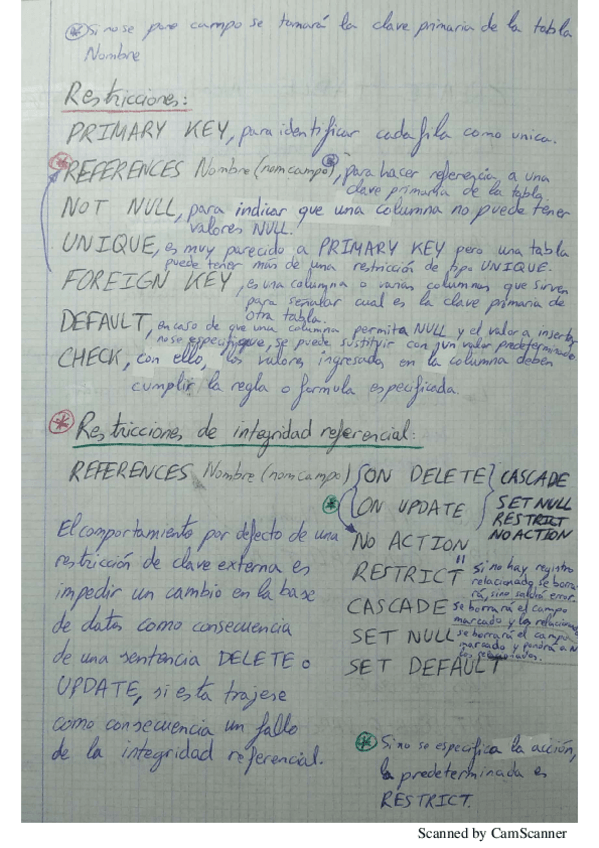 * Si no se pone campo se tomará la clave primaria de la tabla
Nombre
Restricciones:
PRIMARY KEY, para identificar cada fila como unica.
* REFERENCES Nombre (nomcampo)*, para hacer referencia a una
clave primaria de la tabla
NOT NULL, para indicar que una columna no puede tener
valores NULL.
UNIQUE, es muy parecido a PRIMARY KEY pero una tabla
puede tener más de una restricción de tipo UNIQUE.
FOREIGN KEY, es una columna o varias columnas que sirven
para señalar cual es la clave primaria de
otra tabla.
DEFAULT, en caso de que una columna permita NULL y el valor a insertar
no se especifique, se puede sustituir con un valor predeterminado
CHECK, con ello, los valores ingresados en la columna deben
cumplir la regla o formula especificada.
* Restricciones de integridad referencial:
REFERENCES Nombre (nomcampo) ON DELETE CASCADE
* ON UPDATE SET NULL
RESTRICT
NO ACTION
El comportamiento por defecto de una
restricción de clave externa es
impedir un cambio en la base
de datos como consecuencia
de una sentencia DELETE o
UPDATE, si esta trajese
como consecuencia un fallo
de la integridad referencial.
NO ACTION
"
RESTRICT Si no hay registro
relacionado se borra-
rá, sino saldrá error.
CASCADE se borrará el campo
marcado y los relacionad
SET NULL se borrará el campo
marcado y pondrá a N
los relacionados.
SET DEFAULT
* Si no se especifica la acción,
la predeterminada es
RESTRICT.
Scanned by CamScanner